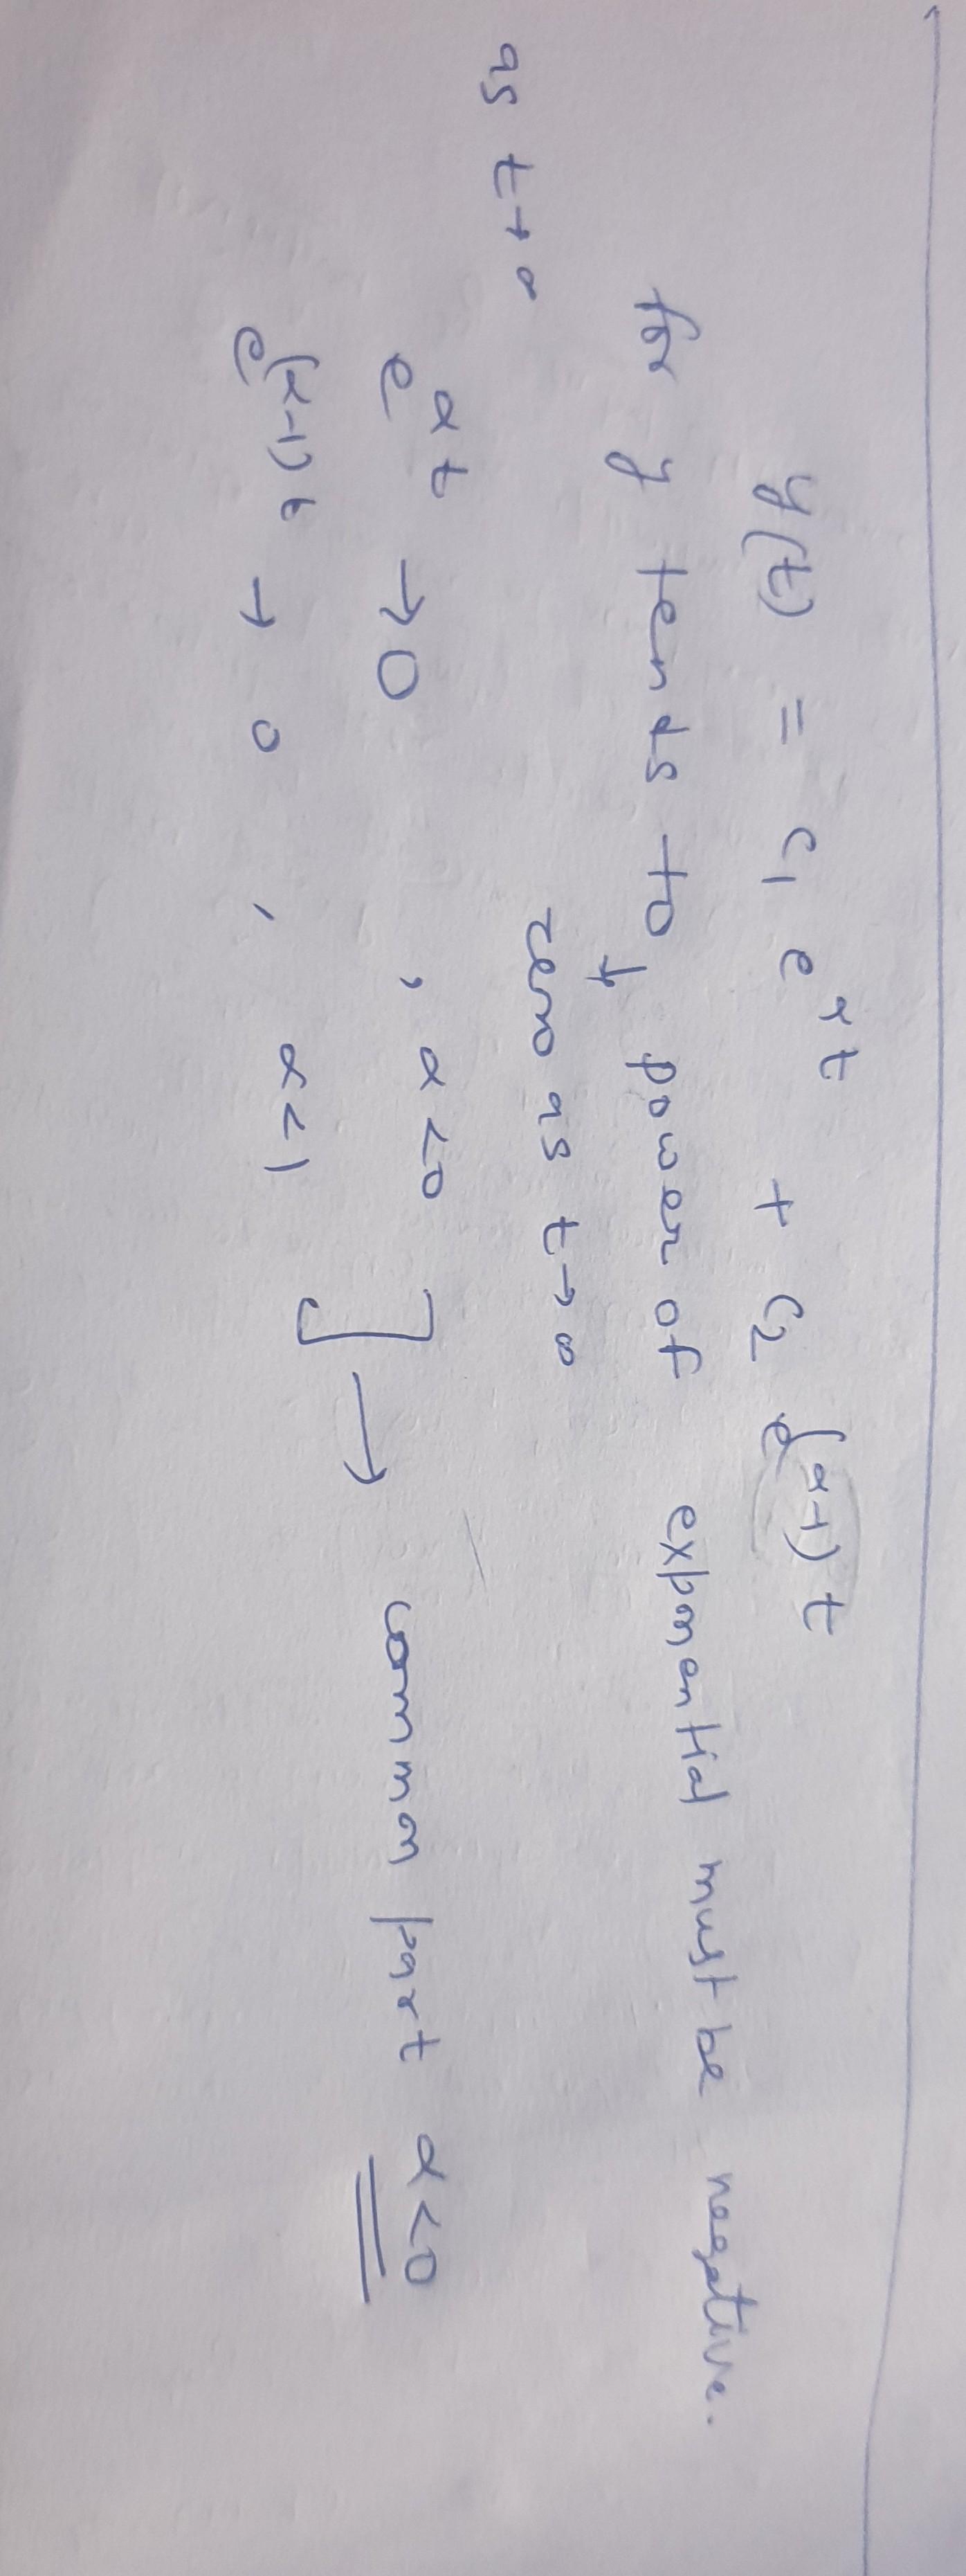 y(t) = c₁ e^{αt} + c₂ e^{(α-1)t}
for y tends to, power of exponential must be negative.
↓
zero as t→∞
as t→∞
e^{αt} → 0 , α<0
e^{(α-1)t} → 0 , α<1
] → common part α<0